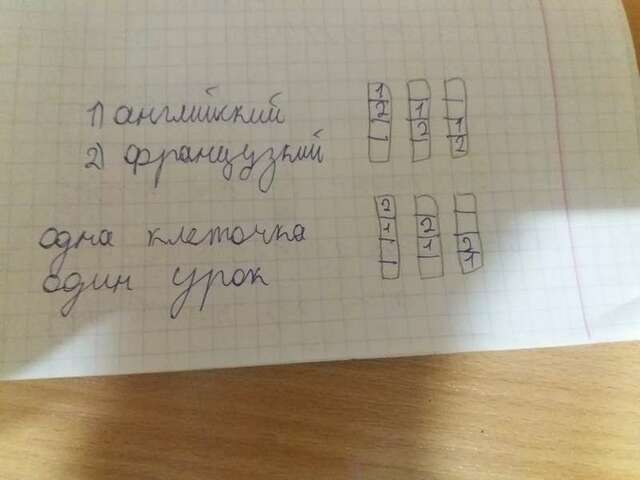 1) английский
2) французкий
1 2
1 2
1 2
одна клеточка
один урок
2 1
2 1
2 1